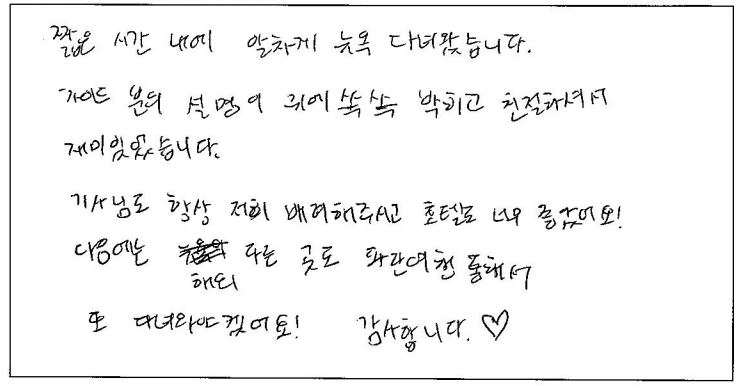 짧은 시간 내에 알차게 뉴욕 다녀왔습니다.
가이드 분의 설명이 귀에 쏙쏙 박히고 친절하셔서
재미있었습니다.
기사님도 항상 저희 배려해주시고 호텔도 너무 좋았어요!
다음에는 다른 곳도 파란여행 통해서
해외
또 다녀와야겠어요! 감사합니다. ♡